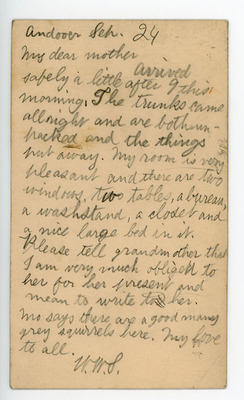 Andover Sep. 24
My dear mother
Arrived
safely a little after 9 this
morning. The trunks came
allright and are both un-
packed and the things
put away. My room is very
pleasant and there are two
windows, two tables, a bureau,
a washstand, a closet and
a nice large bed in it.
Please tell grandmother that
I am very much obliged to
her for her present and
mean to write to her.
Mo says there are a good many
grey squirrels here. My love
to all.
W.W.S.